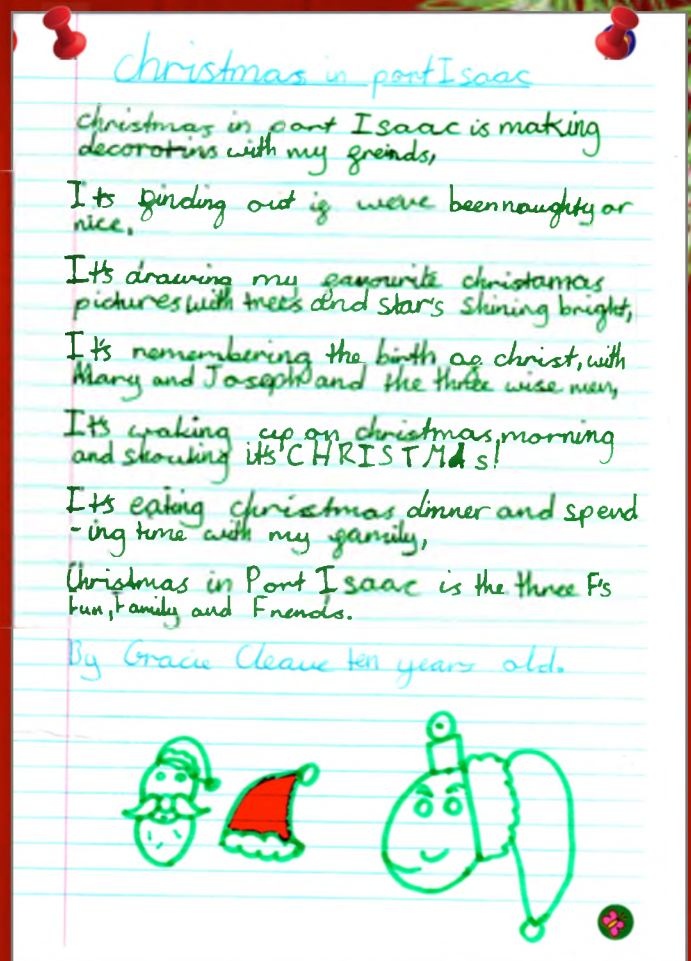 christmas in port Isaac
christmas in port Isaac is making
decorotins with my freinds,
Its finding out if weve been naughty or
nice,
It's drawing my favourite christamas
pictures with trees and star's shining bright,
It's remembering the birth of christ, with
Mary and Joseph and the three wise men,
It's waking up on christmas, morning
and shouting it's CHRISTMAs!
It's eating christmas dinner and spend
-ing time with my family,
Christmas in Port Isaac is the three F's
Fun, Family and Friends.
By Gracie Cleave ten years old.